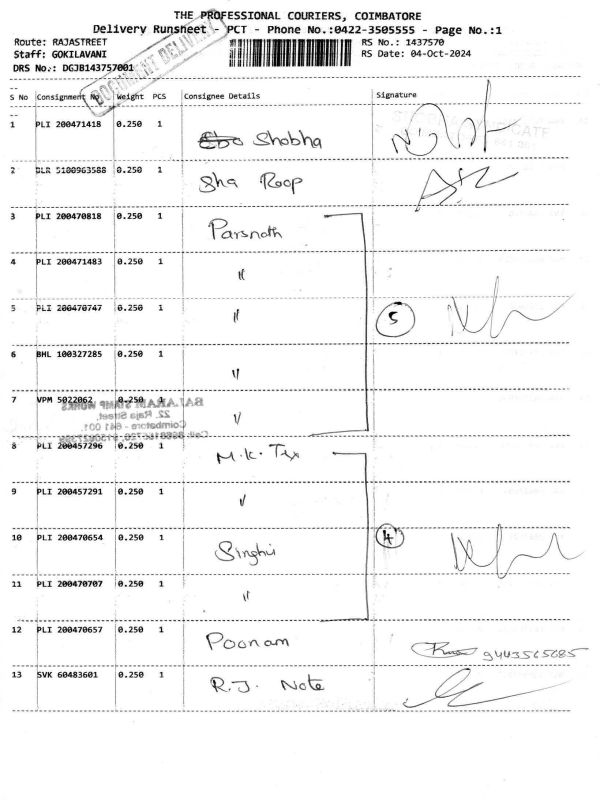 THE PROFESSIONAL COURIERS, COIMBATORE
Delivery Runsheet - PCT - Phone No.:0422-3505555 - Page No.:1
Route: RAJASTREET RS No.: 1437570
Staff: GOKILAVANI RS Date: 04-Oct-2024
DRS No.: DGJB143757001
DOCUMENT DELIVERY
S No Consignment No Weight PCS Consignee Details Signature
1 PLI 200471418 0.250 1 Shobha
2 BLR 5100963588 0.250 1 Sha Roop
3 PLI 200470818 0.250 1 Parsnath
4 PLI 200471483 0.250 1 "
5 PLI 200470747 0.250 1 " 5
6 BHL 100327285 0.250 1 "
7 VPM 5022062 0.250 1 "
BALARAM STAMP WORKS
22, Raja Street,
Coimbatore - 641 001.
8 PLI 200457296 0.250 1 M.K. Tex
9 PLI 200457291 0.250 1 "
10 PLI 200470654 0.250 1 Singhvi 4
11 PLI 200470707 0.250 1 "
12 PLI 200470657 0.250 1 Poonam 9443565685
13 SVK 60483601 0.250 1 R.J. Note